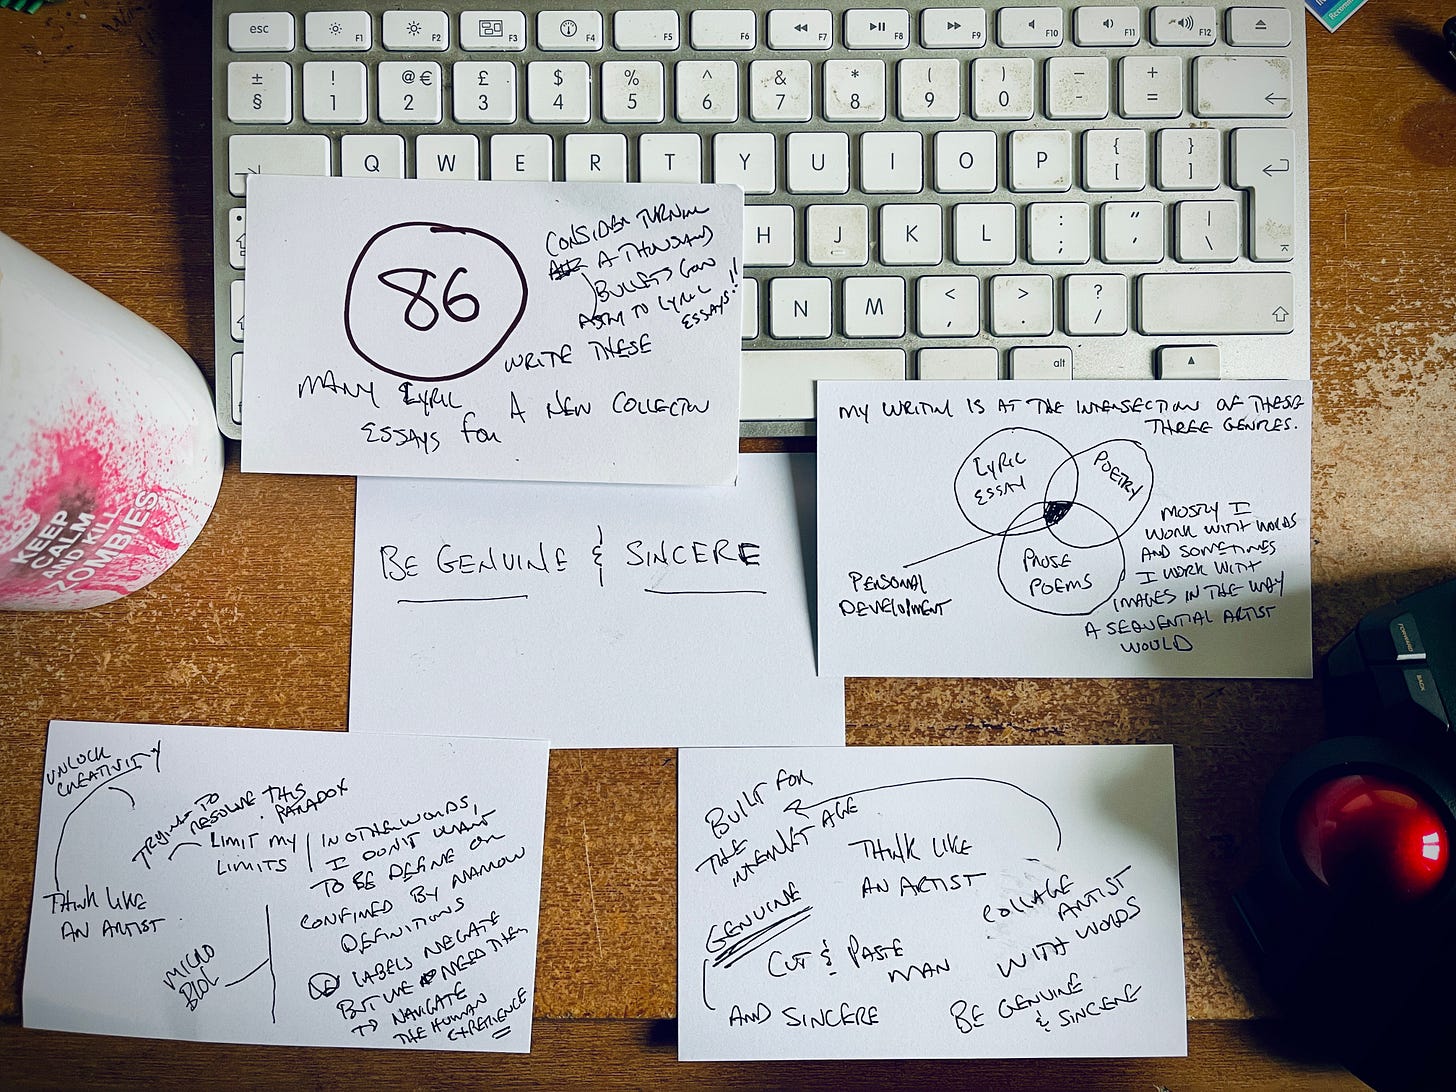 esc
F1
F2
F3
F4
F5
F6
F7
F8
F9
F10
F11
F12
± §
! 1
@ € 2
£ 3
$ 4
% 5
^ 6
& 7
* 8
( 9
) 0
_ -
+ =
Q W E R T Y U I O P { [ } ]
H J K L : ; " ' | \
N M < , > . ? /
alt
86
CONSIDER TURNING
A THOUSAND
BULLETS
TO LYRIC
ESSAYS!!
WRITE THESE
MANY LYRIC
ESSAYS FOR
A NEW COLLECTION
KEEP
CALM
AND KILL
ZOMBIES
BE GENUINE & SINCERE
MY WRITING IS AT THE INTERSECTION OF THESE
THREE GENRES.
LYRIC
ESSAY
POETRY
PROSE
POEMS
PERSONAL
DEVELOPMENT
MOSTLY I
WORK WITH WORDS
AND SOMETIMES
I WORK WITH
IMAGES IN THE WAY
A SEQUENTIAL ARTIST
WOULD
FORWARD
BACK
UNLOCK
CREATIVITY
TRYING TO
RESOLVE THIS
PARADOX
LIMIT MY
LIMITS
THINK LIKE
AN ARTIST
MICRO
BLOG
IN OTHER WORDS,
I DON'T WANT
TO BE DEFINE OR
CONFINED BY NARROW
DEFINITIONS
LABELS NEGATE
BUT WE NEED THEM
TO NAVIGATE
THE HUMAN
EXPERIENCE
BUILT FOR
THE
INTERNET AGE
THINK LIKE
AN ARTIST
GENUINE
AND SINCERE
CUT & PASTE
MAN
COLLAGE
ARTIST
WITH WORDS
BE GENUINE
& SINCERE